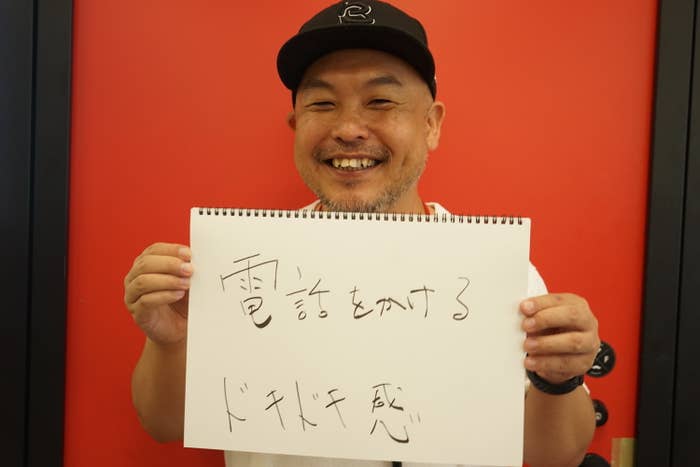 電話をかける
ドキドキ感